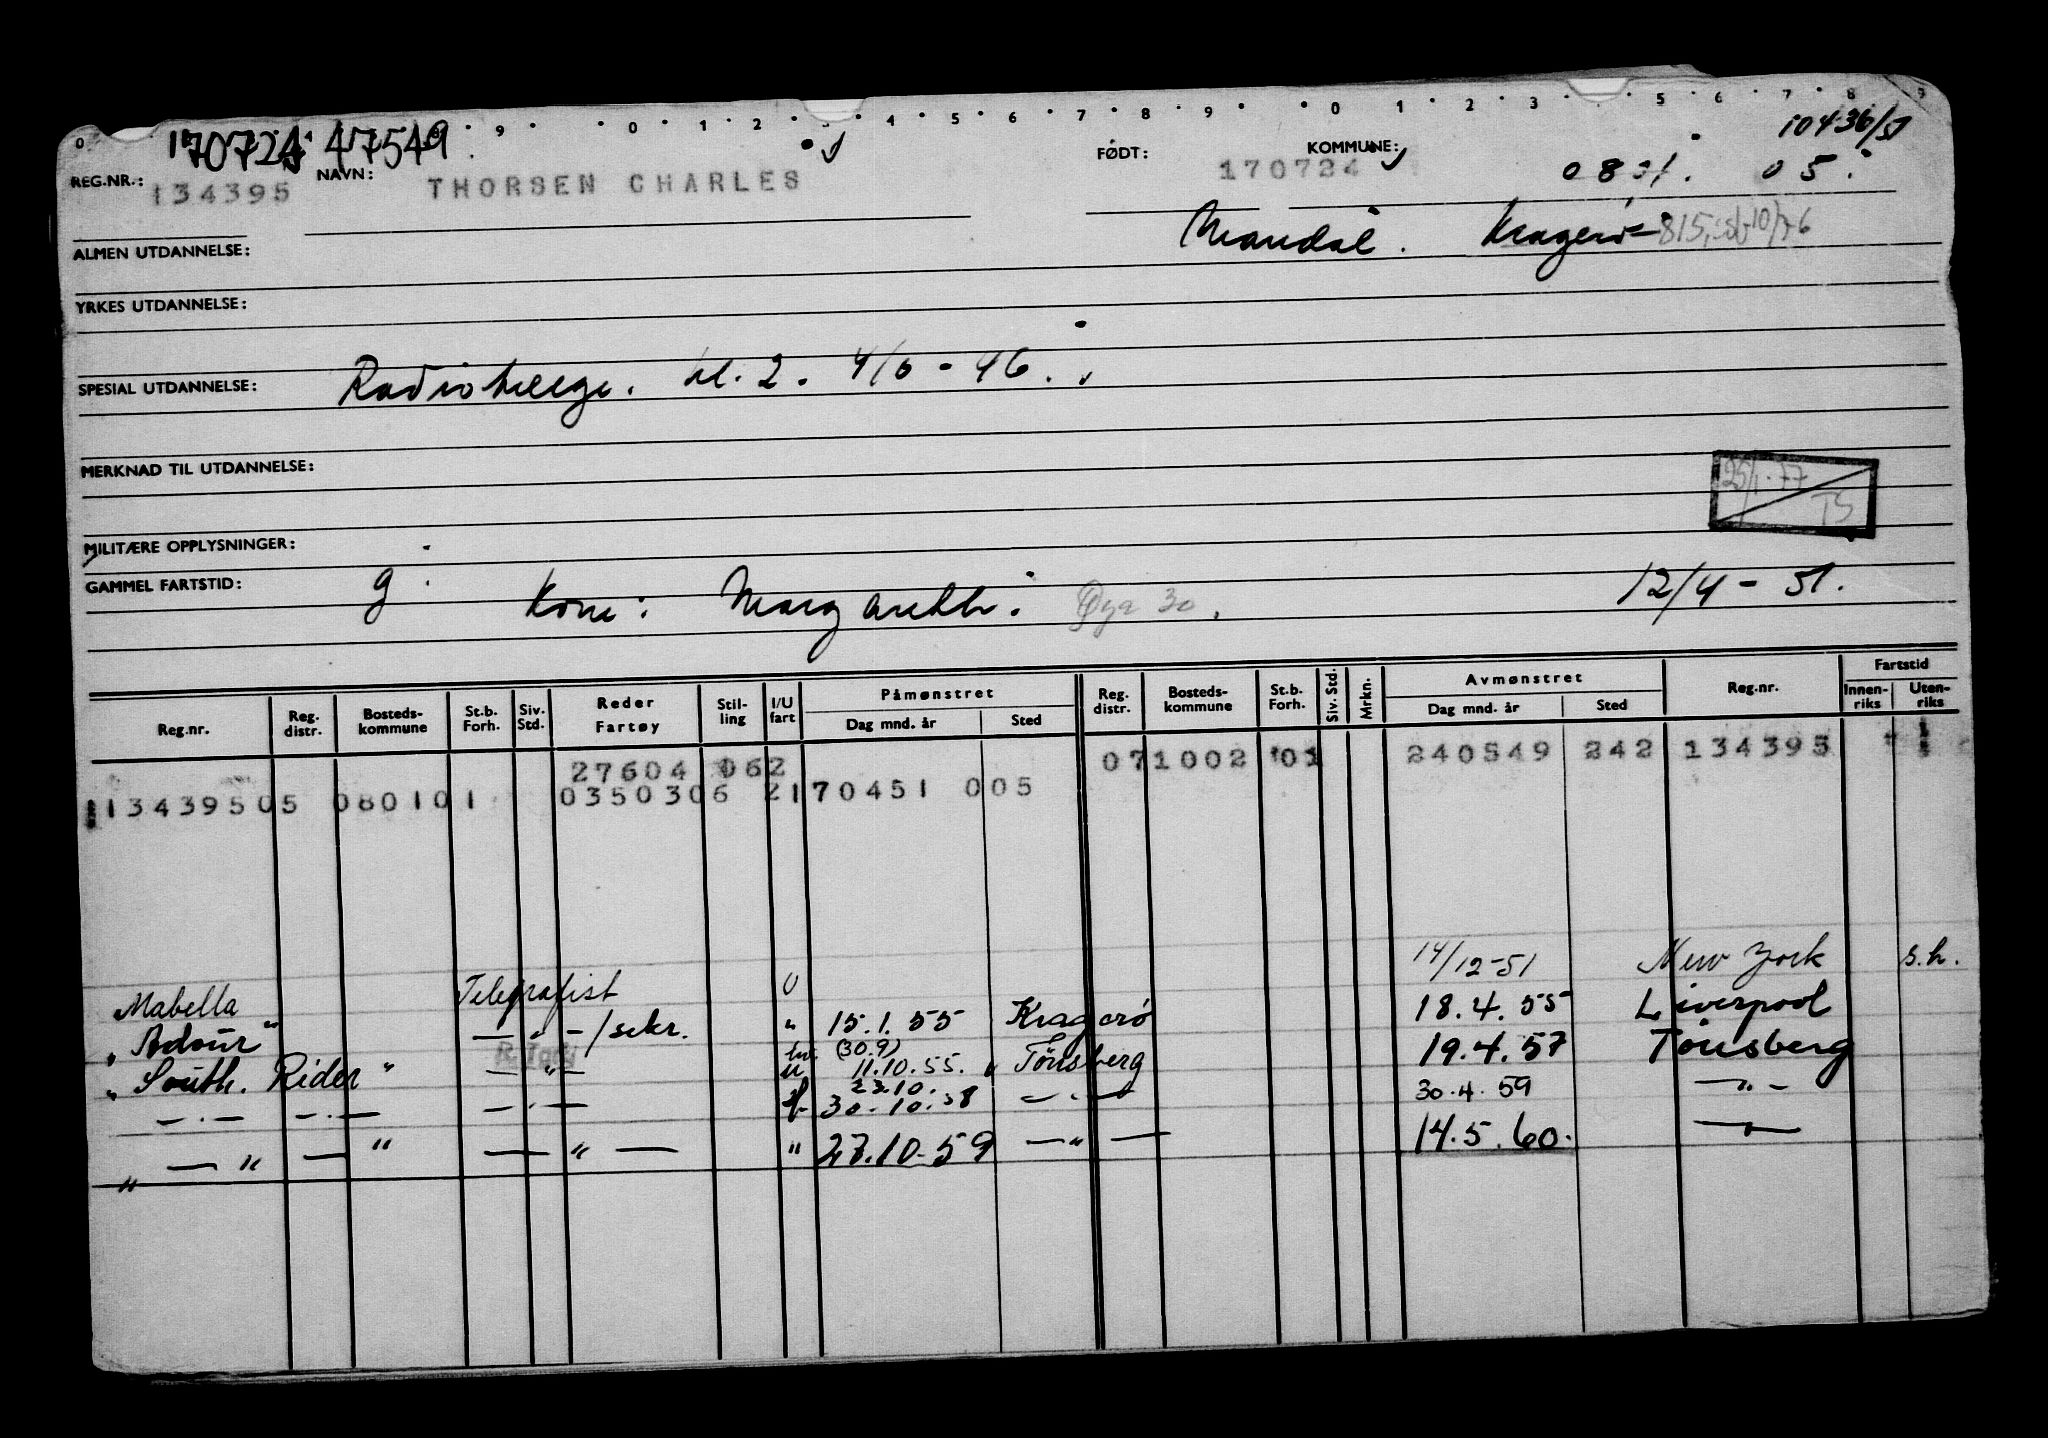 0 8 9 0 1 2 3 4 5 6 7 8 9 0 1 2 3 5 6 7 8 9
170724 47549 10436/51
REG.NR.: 134395 NAVN: THORSEN CHARLES FØDT: 170724 KOMMUNE: 0801. 05.
Mandal. Kragerø 815,
ALMEN UTDANNELSE:
YRKES UTDANNELSE:
SPESIAL UTDANNELSE: kl. 2. 4/6 - 46.
MERKNAD TIL UTDANNELSE:
25/1-77
TS
MILITÆRE OPPLYSNINGER:
GAMMEL FARTSTID: g Kone: Margareth. Øya 30. 12/4 - 51.
Reg.nr. Reg. distr. Bosteds-kommune St.b. Forh. Siv. Std. Reder Fartøy Stil-ling I/U fart Påmønstret Dag mnd. år Sted Reg. distr. Bosteds-kommune St.b. Forh. Siv. Std. Mrkn. Avmønstret Dag mnd. år Sted Reg.nr. Fartstid Innen-riks Uten-riks
27604 062 071002 01 240549 242 134395
13439505 080101 0350306 2170451 005
Mabella Telegrafist U 14/12-51 New York s.h.
" Adour" — " — /sekr. " 15.1.55 Kragerø 18.4.55 Liverpool
" South. Rider " — " — u (30.9) 11.10.55. Tönsberg 19.4.57 Tönsberg
— " — — " — — " — 23.10. 30-10-58 — " — 30.4.59 — " —
" — " — " — " — " 27.10-59 — " — 14.5.60. — " —
"